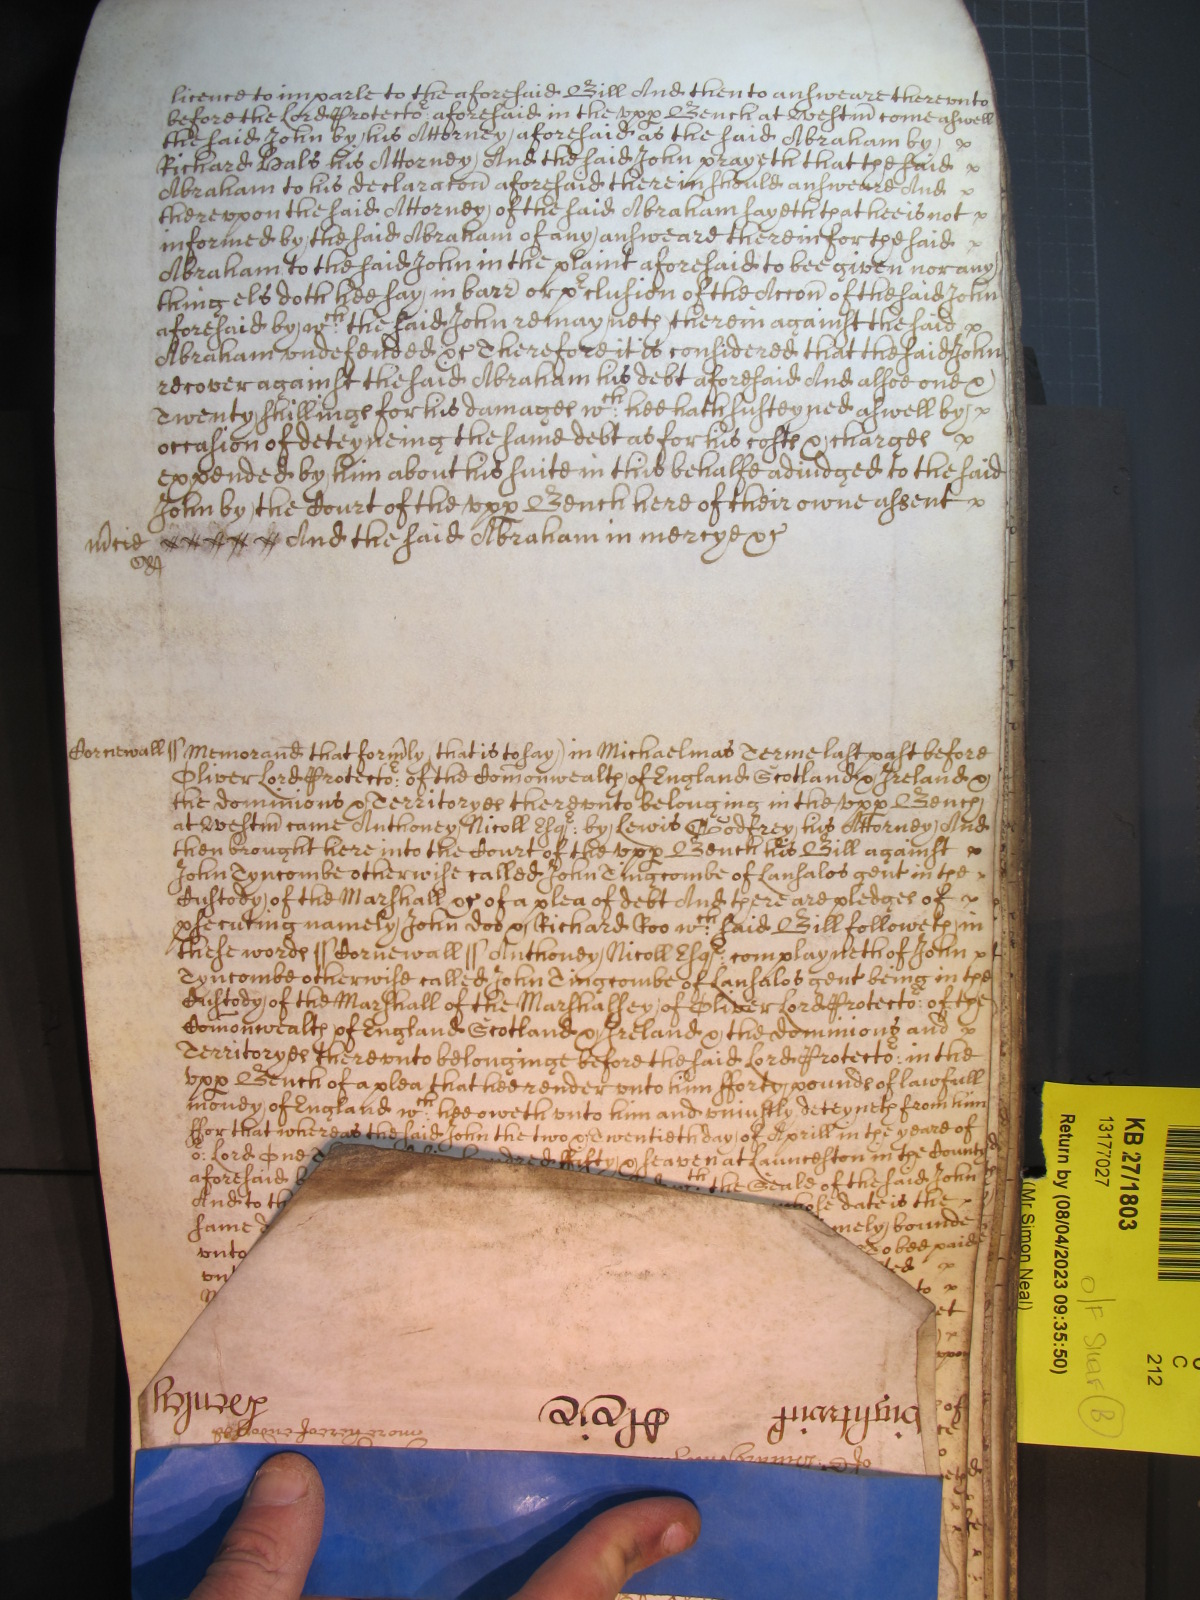 licence to imparle to the aforesaid Bill And then to answeare therevnto
before the Lord Protecto:r aforesaid in the vpp Bench at Westm̄ come aswell
the said John by his Attorney aforesaid as the said Abraham by x
Richard Hals his Attorney And the said John prayeth that the said x
Abraham to his declaraton̄ aforesaid therein should answeare And x
therevpon the said Attorney of the said Abraham sayeth that hee is not x
informed by the said Abraham of any answeare therein for the said x
Abraham to the said John in the plaint aforesaid to bee given nor any
thing els doth hee say in barr or p̱clusion of the Accon̄ of the said John
aforesaid by w:ch the said John remayneth therein against the said x
Abraham vndefended &c Therefore it is considered that the said John
recover against the said Abraham his debt aforesaid And alsoe one &
Twenty shillings for his damages w:ch hee hath susteyned aswell by x
occasion of deteyneing the same debt as for his costs & charges x
expended by him about his suite in this behalfe adiudged to the said
John by the Court of the vpp Bench here of their owne assent x
m̄cie And the said Abraham in mercye &c
Cornewall ss Memorand̄ that form̄ly that is to say in Michaelmas Terme last past before
Oliver Lord Protecto:r of the Com̄onwealth of England Scotland & Ireland &
the dominions & Territoryes therevnto belonging in the vpp Bench
at Westm̄ came Anthoney Nicoll Esq:r by Lewis Godfrey his Attorney And
then brought here into the Court of the vpp Bench his Bill against x
John Tyncombe otherwise called John Tingcombe of Lansalos gent in the x
Custody of the Marshall &c of a plea of debt And there are pledges of x
p̱secuting namely John Doo & Richard Roo w:ch said Bill followeth in
these words ss Cornewall ss Anthoney Nicoll Esq:r complayneth of John x
Tyncombe otherwise called John Tingcombe of Lansalos gent being in the
Custody of the Marshall of the Marshalsey of Oliver Lord Protecto:r of the
Com̄onwealth of England Scotland & Ireland & the dominions and x
Territoryes therevnto belonginge before the said Lord Protecto:r in the
vpp Bench of a plea that hee render vnto him fforty pounds of lawfull
money of England w:ch hee oweth vnto him and vniustly deteyneth from him
ffor that whereas the said John the two & Twentieth day of Aprill in the yeare of
o:r Lord One hundred ffifty & seaven at Launceston in the County
aforesaid w:th the Seale of the said John
And to the whose date is the x
same namely bounde
vnto to bee paid
to x
of
KB 27/1803
13177027
Return by (08/04/2023 09:35:50)
(Mr Simon Neal)
O/F Shelf B
C
212